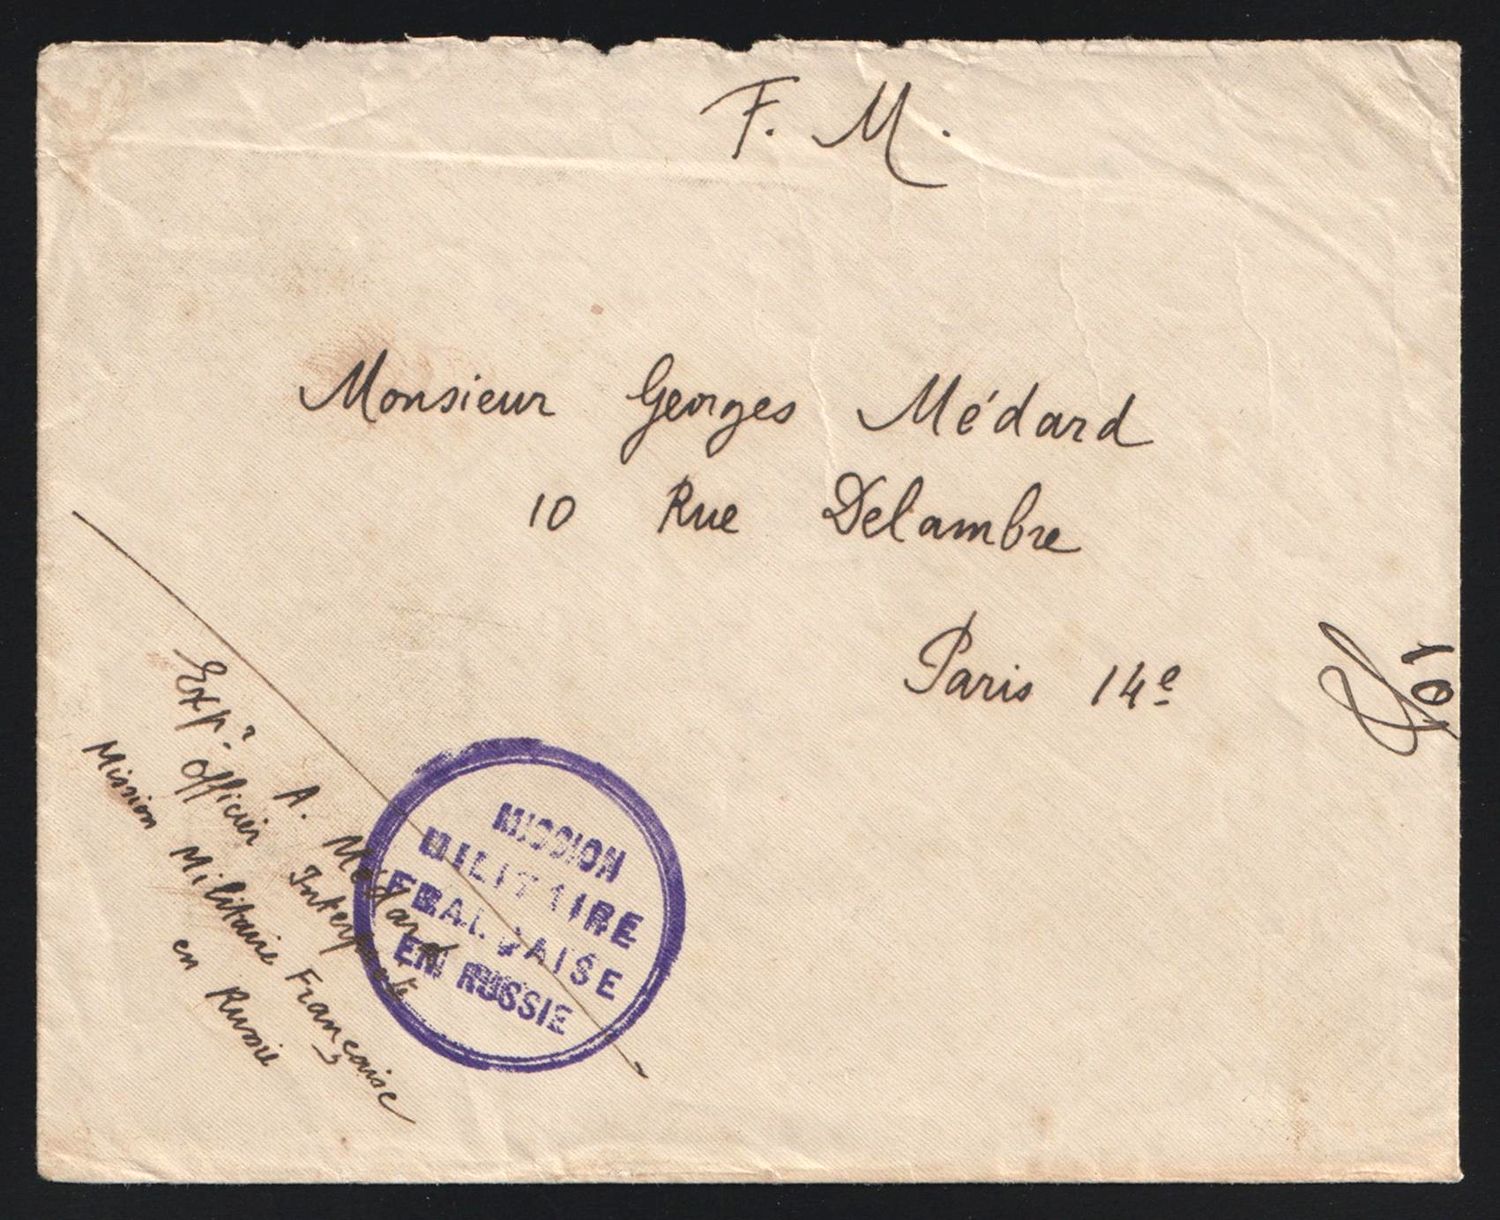 F. M.
Monsieur Georges Médard
10 Rue Delambre
Paris 14e
Expr. A. Médard
Officier Interprète
Mission Militaire Française
en Russie
MISSION
MILITAIRE
FRANÇAISE
EN RUSSIE
101